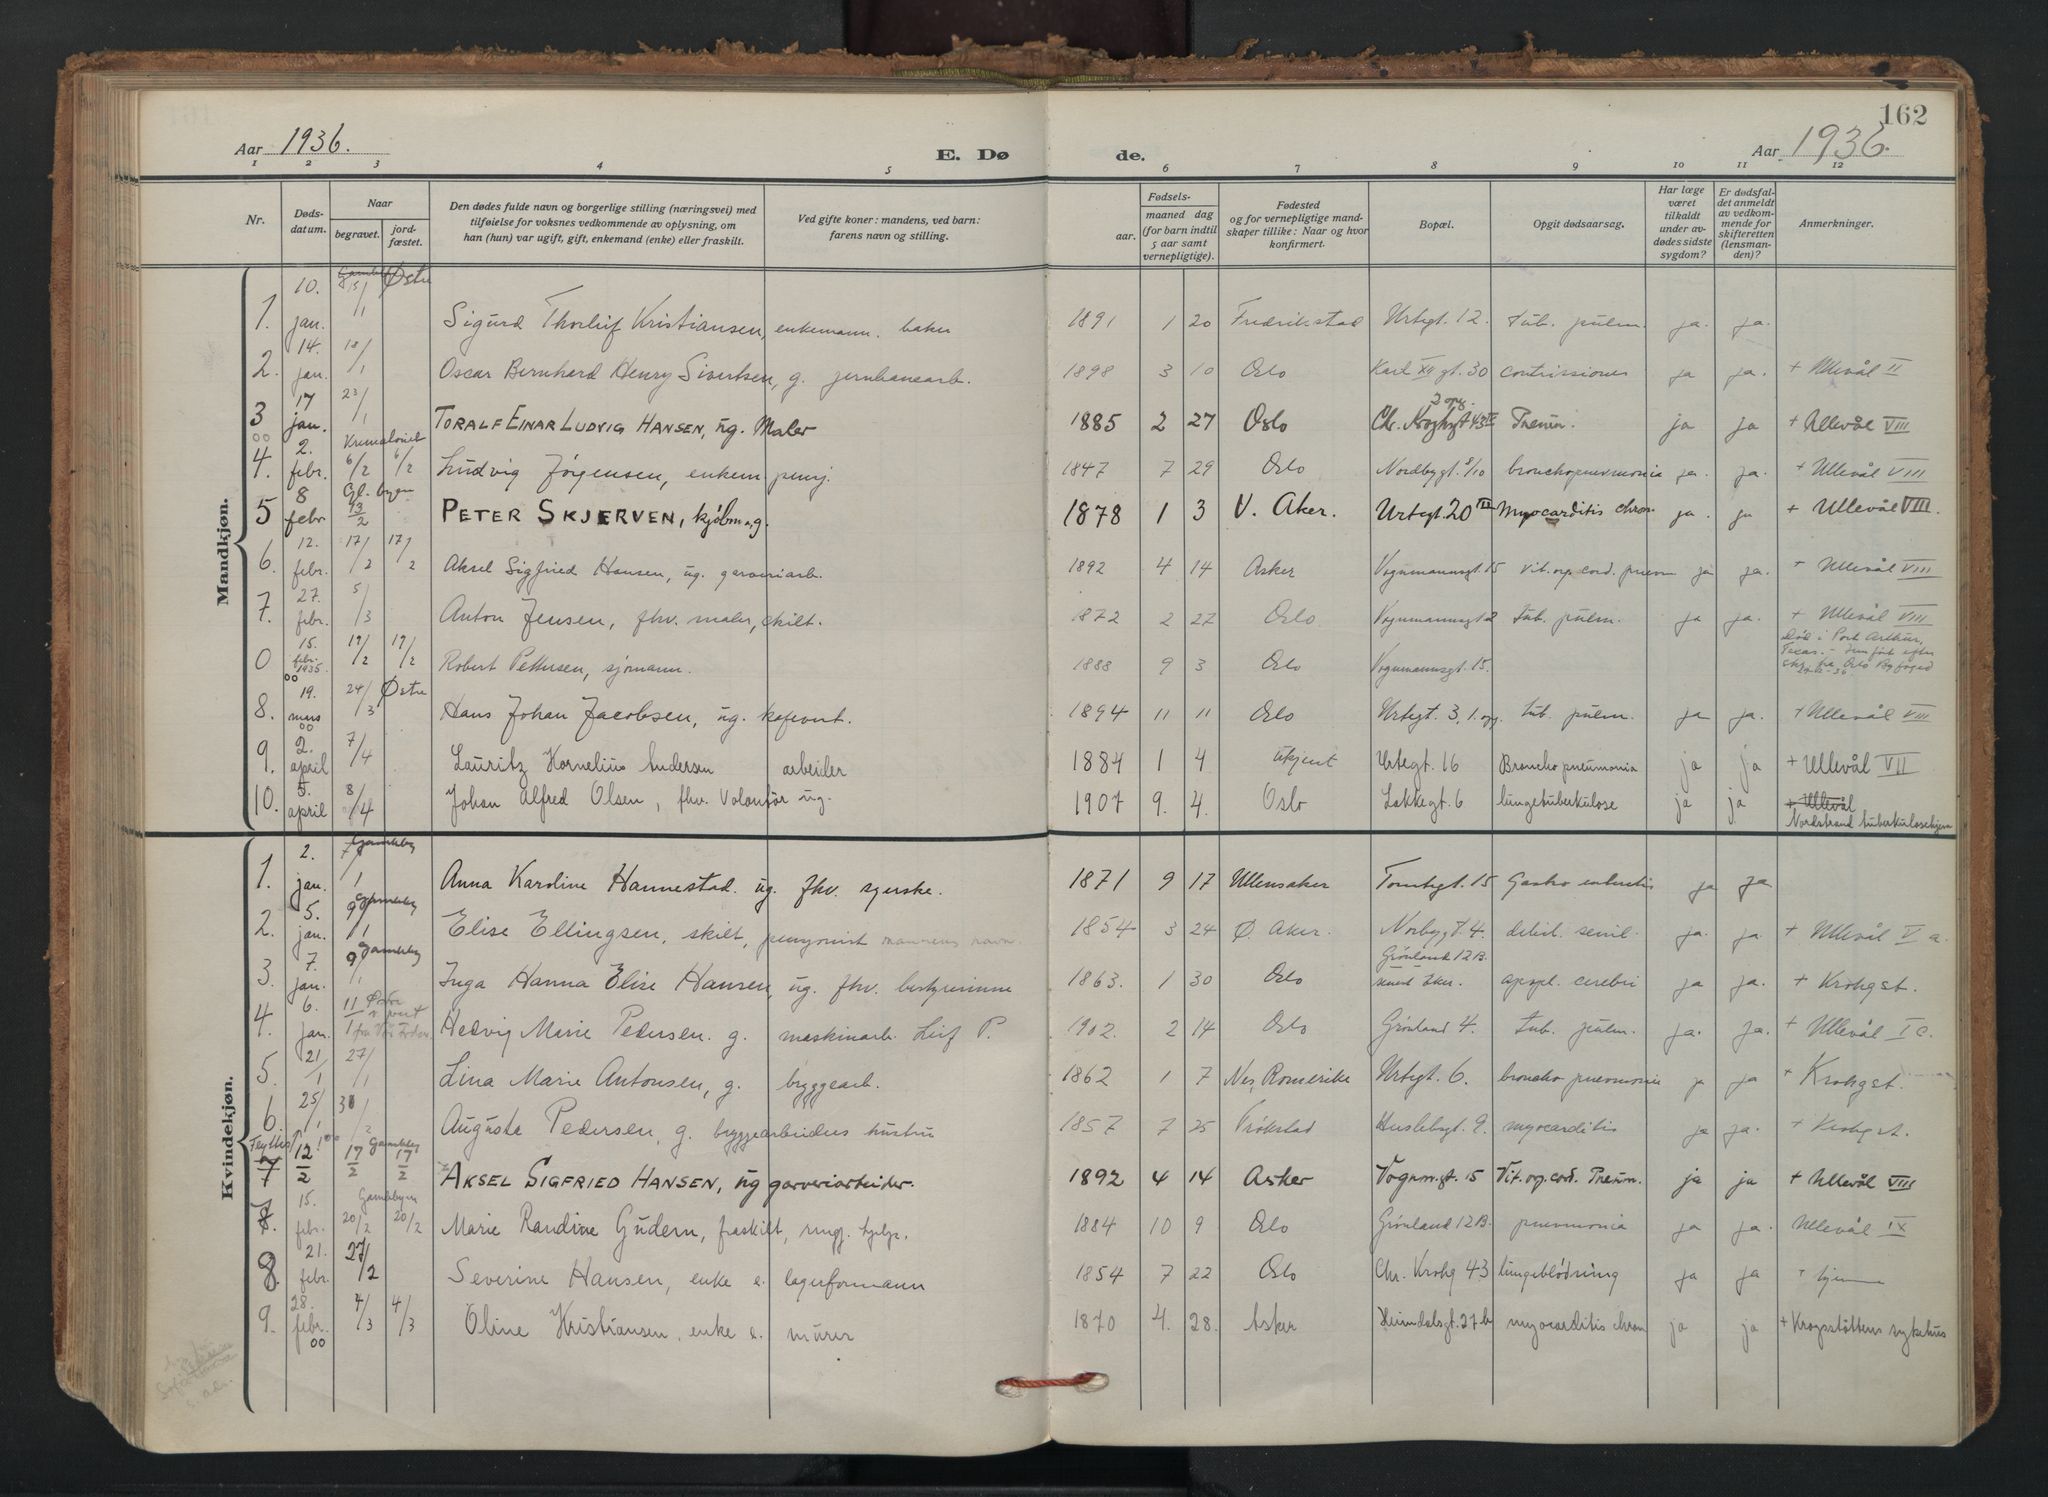 162
Aar 1936. E. Dø de. Aar 1936.
1 2 3 4 5 6 7 8 9 10 11 12
Nr. Døds-datum. Naar begravet. jord-fæstet. Den dødes fulde navn og borgerlige stilling (næringsvei) med tilføielse for voksnes vedkommende av oplysning, om han (hun) var ugift, gift, enkemand (enke) eller fraskilt. Ved gifte koner: mandens, ved barn: farens navn og stilling. Fødsels- aar. maaned dag (for barn indtil 5 aar samt vernepligtige). Fødested og for vernepligtige mand-skaper tillike: Naar og hvor konfirmert. Bopæl. Opgit dødsaarsag. Har læge været tilkaldt under av-dødes sidste sygdom? Er dødsfal-det anmeldt av vedkom-mende for skifteretten (lensman-den)? Anmerkninger.
Mandkjøn.
1. 10. jan. 15/1 Østre Sigurd Thorleif Kristiansen, enkemann. baker 1891 1 20 Fredrikstad Urtegt. 12. tub. pulm. ja. ja.
2. 14. jan. 18/1 Oscar Bernhard Henry Sivertsen, g. jernbanearb. 1898 3 10 Oslo Karl XII gt. 30 contusiones ja ja. + Ullevål II
3 17 jan. 23/1 TORALF EINAR LUDVIG HANSEN, ug. Maler 1885 2 27 Oslo Chr. Krohgsgt 43 IV 2 opg. Pneum. ja ja + Ullevål VIII
4. 2. febr. Krematoriet 6/2 6/2 Ludvig Jørgensen, enkem. pensj. 1847 7 29 Oslo Nordbygt. 8/10 bronchopneumonia ja. ja. + Ullevål VIII
5 8 febr. Gl. byen 13/2 PETER SKJERVEN, kjøbm. g. 1878 1 3 V. Aker. Urtegt. 20 III Myocarditis chron. ja. ja + Ullevål VIII.
6. 12. febr. 17/2 17/2 Aksel Sigfried Hansen, ug. garveriarb. 1892 4 14 Asker Vognmannsgt. 15 Vit. op. cord. pneum ja ja. + Ullevål VIII
7. 27. febr. 5/3 Anton Jensen, fhv. maler, skilt. 1872 2 27 Oslo Vognmannsgt 2 tub. pulm. ja ja. + Ullevål VIII
0 15. febr. 1935 19/2 19/2 Robert Pettersen, sjømann. 1888 9 3 Oslo Vognmannsgt. 15. Død i Port Arthur, Texas. - Innført efter skr. fra Oslo Byfoged
8. 19. mars 24/3 Østre Hans Johan Jacobsen, ug. kafevert. 1894 11 11 Oslo Urtegt. 3, 1. opg. tub. pulm. ja ja. + Ullevål VIII
9. 2. april 7/4 Lauritz Kornelius Andersen arbeider 1884 1 4 ukjent Urtegt. 16 Broncho pneumonia ja ja + Ullevål VII
10. 5. april 8/4 Johan Alfred Olsen, fhv. Volontør ug. 1907 9. 4. Oslo Lakkegt. 6 lungetuberkulose ja ja + Ullevål Nordstrand tuberkulosehjem
Kvindekjøn.
1. 2. jan. 7/1 Gamleby Anna Karoline Hannestad. ug. fhv. syerske. 1871 9 17 Ullensaker Tomtegt. 15 Gastro enteritis ja ja.
2. 5. jan. 9/1 Gamleby Elise Ellingsen, skilt, pensjonist mannens navn. 1854 3 24 Ø. Aker. Norbygt. 4. debil. senil. ja. ja. + Ullevål V a.
3. 7. jan. 9/1 Gamleby Inga Hanna Elise Hansen, ug. fhv. bestyrerinne 1863. 1 30 Oslo Grønland 12B. apopl. cerebri ja ja. + Krohgst.
4. 6. jan. 11/1 Hedvig Marie Pedersen. g. maskinarb. Leif P. 1902. 2 14 Oslo Grønland 4. tub. pulm. ja. ja. + Ullevål I c.
5. 21/1 27/1 Lina Marie Antonsen, g. byggearb. 1862 1 7 Nes, Romerike Urtegt. 6. broncho pneumonia ja ja + Krohgst.
6. 25/1 Augusta Pedersen, g. byggearbeiders hustru 1857 7 25 Trøkstad Heslebygt. 9. myocarditis ja ja. + Krohgst.
Flyttes!
7 12/2 17/2 Gamleby 17/2 AKSEL SIGFRIED HANSEN, ug garveriarbeider. 1892 4 14 Asker Vognm.gt. 15 Vit. op. cord. Pneum. ja ja + Ullevål VIII
7. 15. febr. Gamlebyen 20/2 20/2 Marie Randine Gudern, fraskilt, rengj. hjelp. 1884 10 9 Oslo Grønland 12B. pneumonia ja ja. Ullevål IX
8. 21. febr. 27/2 Severine Hansen, enke e. lagerformann 1854 7 22 Oslo Chr. Krohg 43 lungeblødning ja ja + hjemme
9. 28. febr. 4/3 4/3 Oline Kristiansen, enke e. murer 1870 4. 28. Asker Heimdalsgt. 27 b myocarditis chron ja ja + Krogsstøttens sykehus